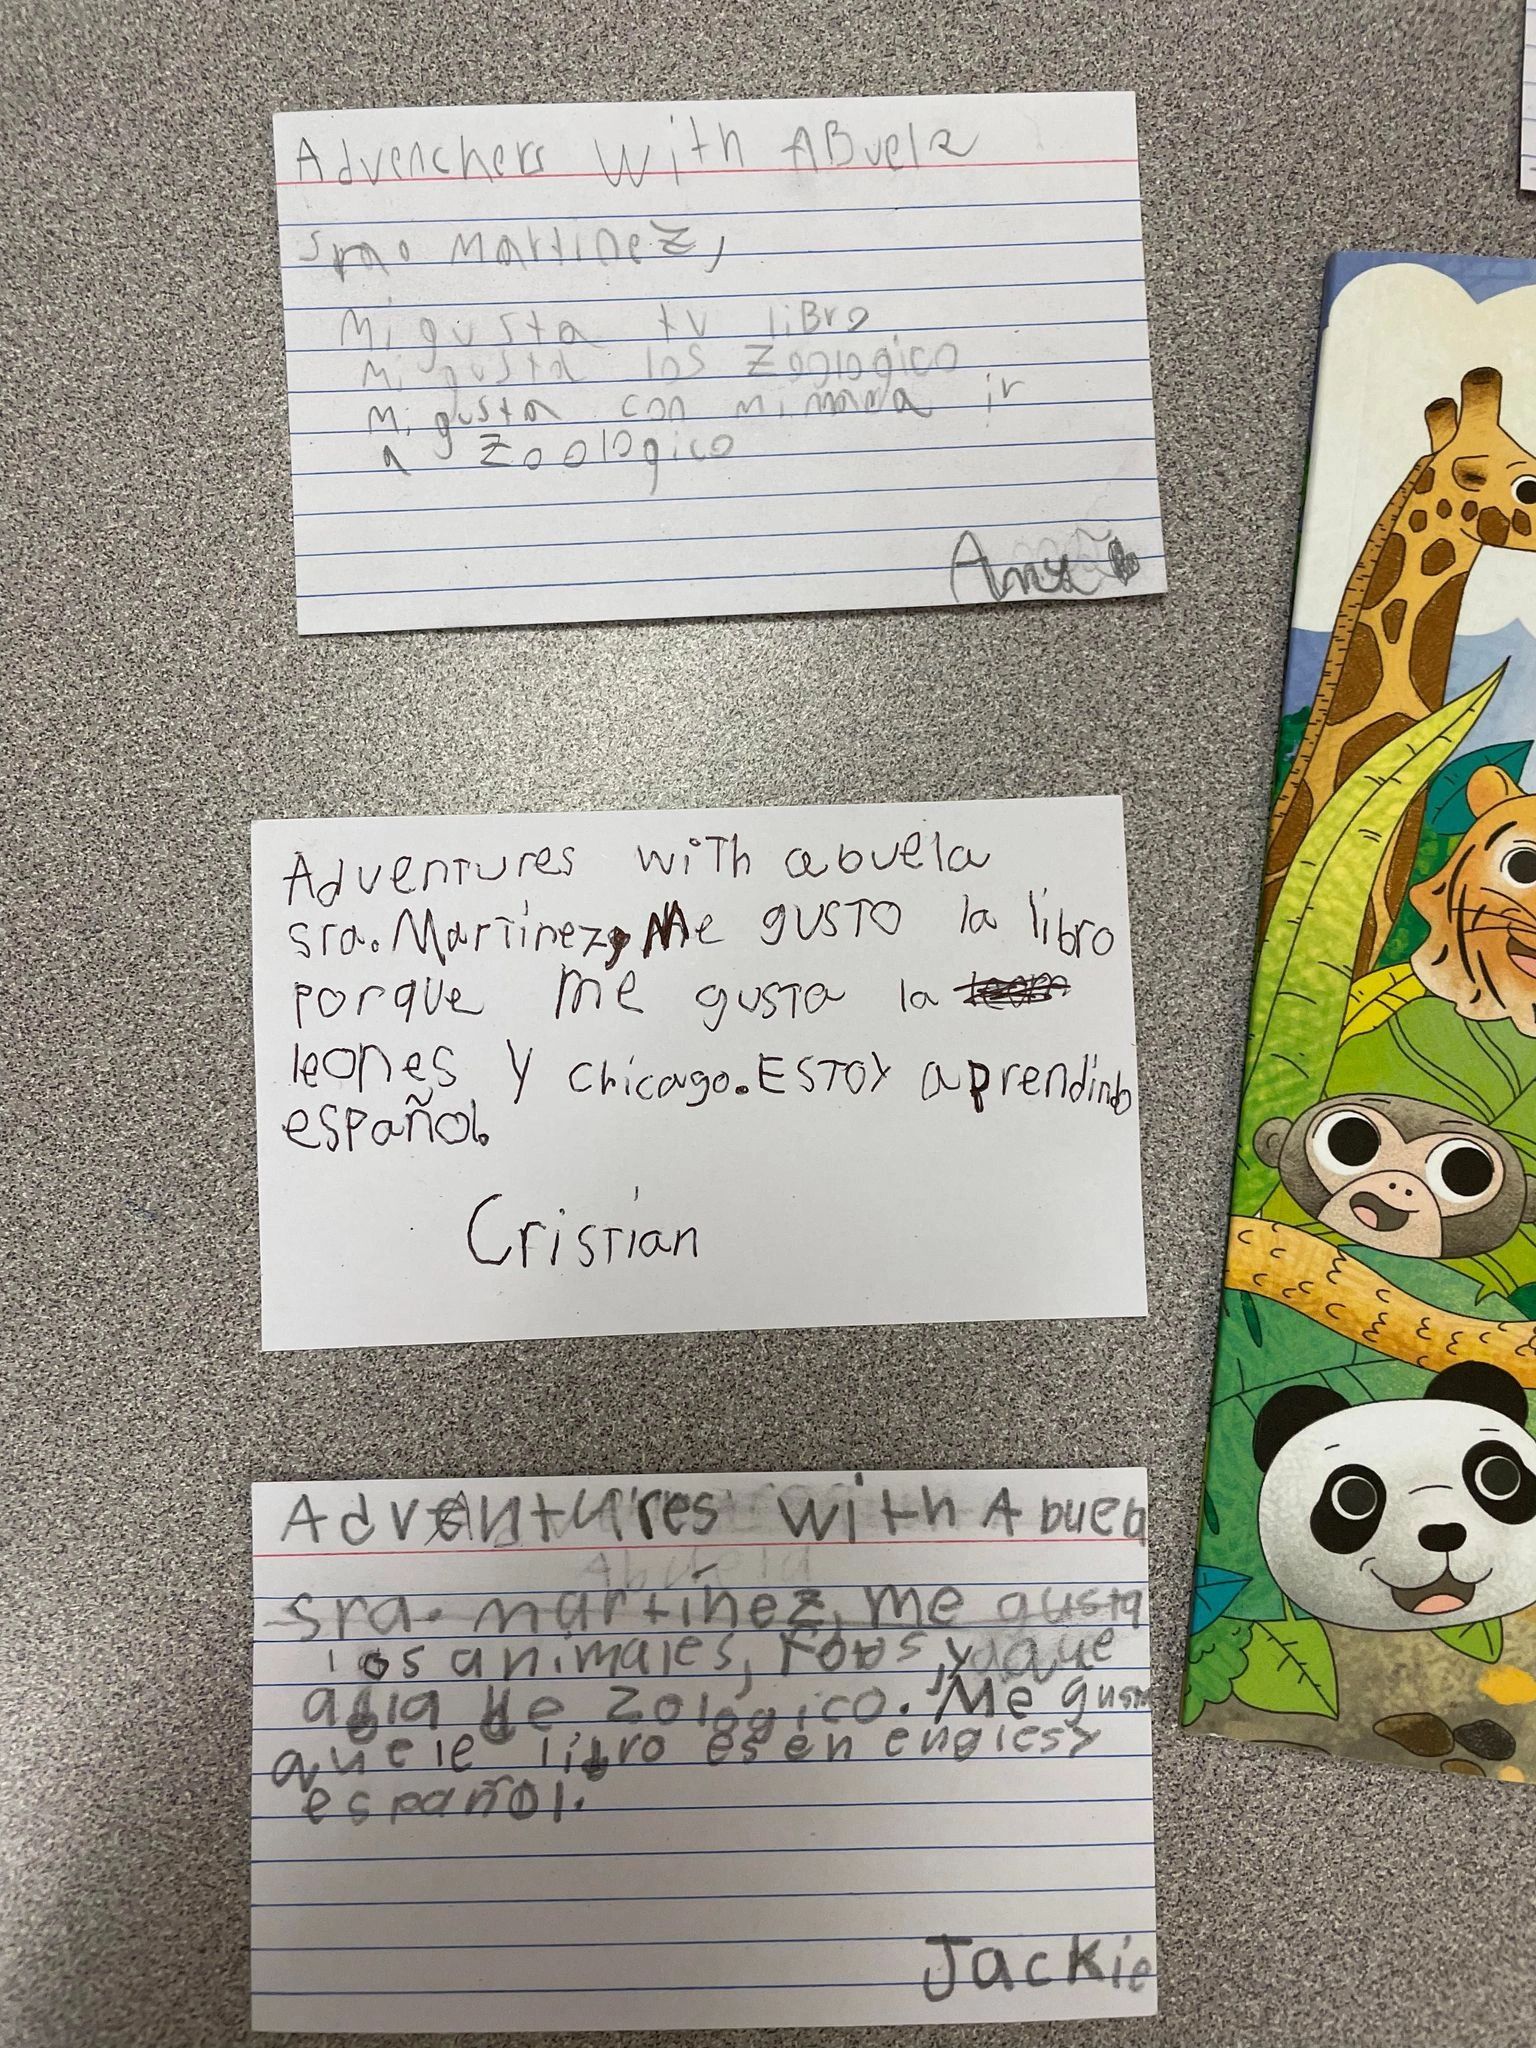 Advenchers With ABuela
sra. Martinez,
Mi gusta tu liBro
Mi gusta los Zoologico
Mi gusta con mi mama ir
a Zoologico
Adventures with abuela
sra. Martinez, Me gusto la libro
porque me gusta la
leones y chicago. Estoy aprendindo
español.
Cristian
Adventures with Abuela
sra. martinez, me gusta
los animales, y que
de zologico. Me gusta
que le libro es en engles y
español.
Jackie